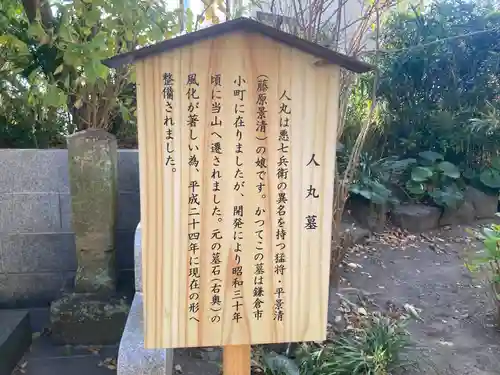 人丸墓
人丸は悪七兵衛の異名を持つ猛将・平景清
（藤原景清）の娘です。かつてこの墓は鎌倉市
小町に在りましたが、開発により昭和三十年
頃に当山へ遷されました。元の墓石（右奥）の
風化が著しい為、平成二十四年に現在の形へ
整備されました。